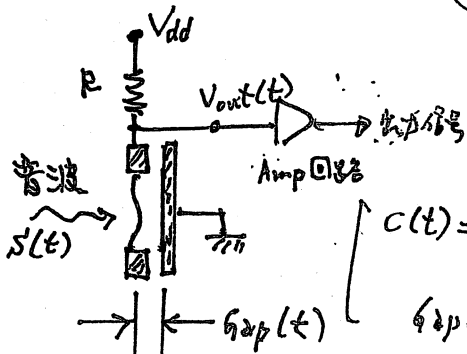 Vdd
R
Vout(t)
出力信号
Amp回路
音波
S(t)
C(t)=
Gap(t)
Gap